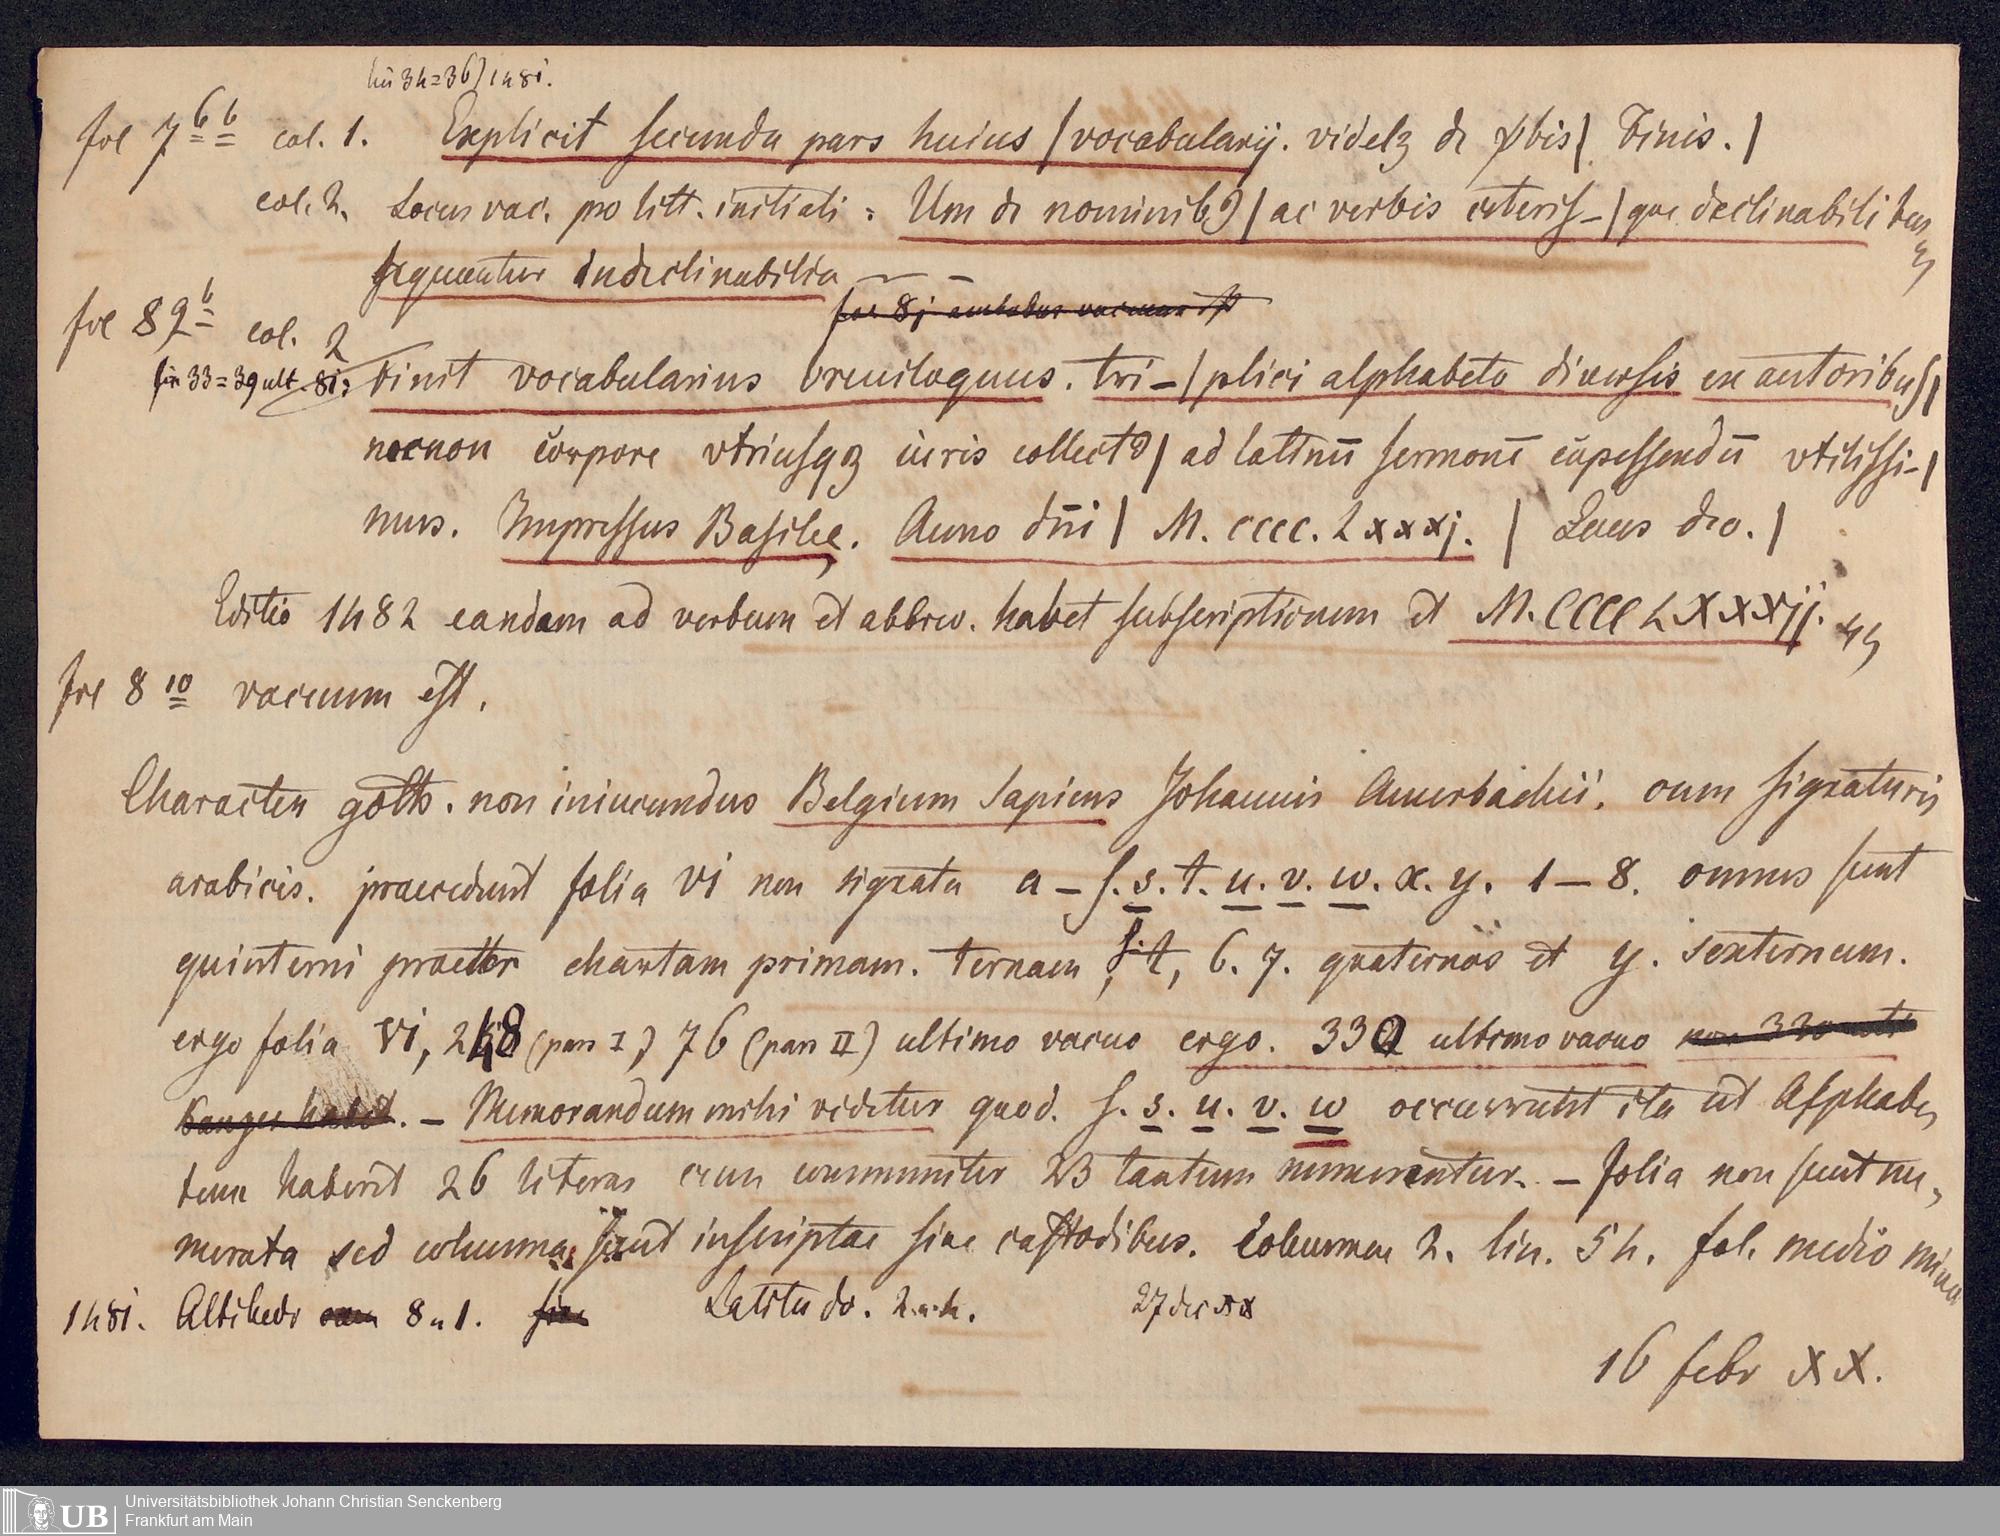 lin 34=36) 1481.
fol 7 6 b col. 1. Explicit secunda pars huius / vocabularij. videlz de ṽbis / Finis. /
col. 2. Locus vac. pro litt. initiali : Um de nominibꝰ / ac verbis ceteris- / que declinabilibus
sequuntur indeclinabilia — —
fol 8j ambabus vacuum est
fol 89 b col. 2
lin 33=39 ult. 81: Finit vocabularius breuiloquus. tri- / plici alphabeto diuersis ex autoribus /
necnon corpore vtriusqz iuris collectꝰ / ad latinū sermonē capessendū vtilissi- /
mus. Impressus Basilee. Anno dñi / M. cccc. Lxxxj. / Laus deo. /
Editio 1482 eandem ad verbum et abbrev. habet subscriptionem et M. CCCC LXXXjj.
fol 8 10 vacuum est.
Character goth. non iniucundus Belgicum sapiens Johannis Amerbachii. cum signaturis
arabicis. praecedunt folia VI non signata a – ſ. s. t. u. v. w. x. y. 1 – 8. omnes sunt
quinterni praeter chartam primam. ternam ſ. t, 6. 7. quaternos et y. sexternum.
ergo folia VI, 248 (pars I,) 76 (pars II) ultimo vacuo ergo. 330 ultimo vacuo non 330 uti
Panzer habet. – Memorandum mihi videtur quod. ſ. s. u. v. w occurrunt ita ut Alphabe,
tum haberet 26 literas cum communiter 23 tantum numerentur. – folia non sunt nu,
merata sed columnae sunt inscriptae sine custodibus. Columnae 2. lin. 54. fol. medio min
1481. Altitudo 8 u 1. Latitudo. 2. u. 4. 27 dec xx
16 febr XX.
Universitätsbibliothek Johann Christian Senckenberg
UB Frankfurt am Main